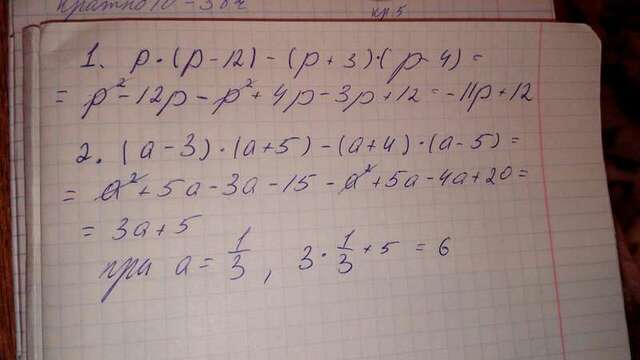 кратно 10 - 30%
кр.5
1. p·(p-12)-(p+3)·(p-4)=
= p²-12p-p²+4p-3p+12=-11p+12
2. (a-3)·(a+5)-(a+4)·(a-5)=
= a²+5a-3a-15-a²+5a-4a+20=
= 3a+5
при a=1/3, 3·1/3+5=6